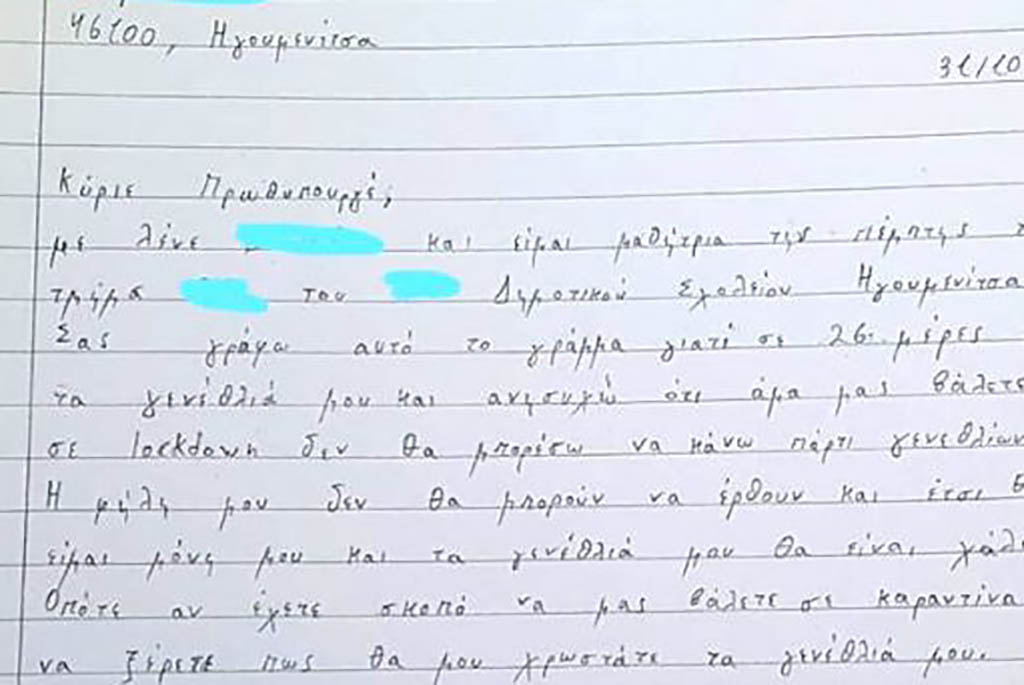 46100, Ηγουμενίτσα
31/10
Κύριε Πρωθυπουργέ,
με λένε και είμαι μαθήτρια της πέμπτης τ
τμήμα του Δημοτικού Σχολείου Ηγουμενίτσα
Σας γράφω αυτό το γράμμα γιατί σε 26 μέρες
τα γενέθλιά μου και ανησυχώ ότι άμα μας βάλετε
σε lockdown δεν θα μπορέσω να κάνω πάρτι γενεθλίων
Η φήλη μου δεν θα μπορούν να έρθουν και έτσι θ
είμαι μόνη μου και τα γενέθλιά μου θα είναι χάλι
Οπότε αν έχετε σκοπό να μας βάλετε σε καραντίνα
να ξέρετε πως θα μου χρωστάτε τα γενέθλιά μου.